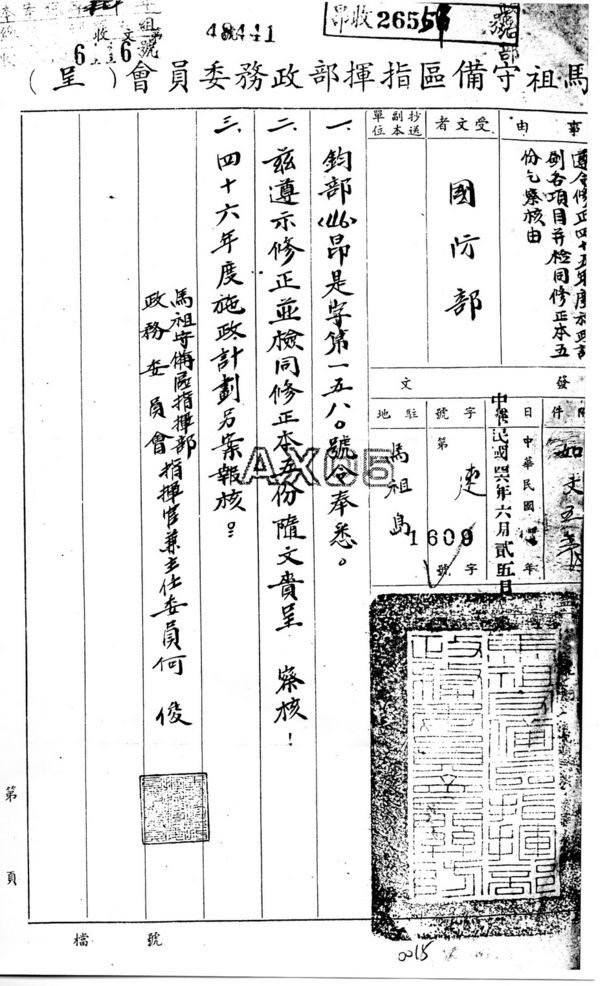 48441
昂收26556
收文
6
6
號
馬祖守備區指揮部政務委員會(呈)
事由
遵令修正四十五年度施政計
劃各項目并檢同修正本五
份乞察核由
受文者
國防部
抄送副本單位
發文
附件
日
中華民國
年
中華民國四六年六月貳五日
字號
連
字第1609號
駐地
馬祖島
一、鈞部(46)昂是字第一五八〇號令奉悉。
二、茲遵示修正並檢同修正本五份隨文賚呈 察核!
三、四十六年度施政計劃另案報核。
馬祖守備區指揮部
政務委員會
指揮官兼主任委員何俊
AX05
第 頁
檔 號
0015